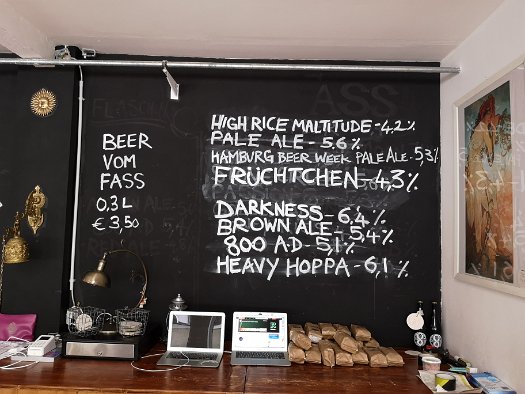 BEER
VOM
FASS
0,3 L
€ 3,50
HIGH RICE MALTITUDE - 4,2 %
PALE ALE - 5,6 %
HAMBURG BEER WEEK PALE ALE - 5,3 %
FRÜCHTCHEN - 4,3 %
DARKNESS - 6,4 %
BROWN ALE - 5,4 %
800 A.D - 5,1 %
HEAVY HOPPA - 6,1 %